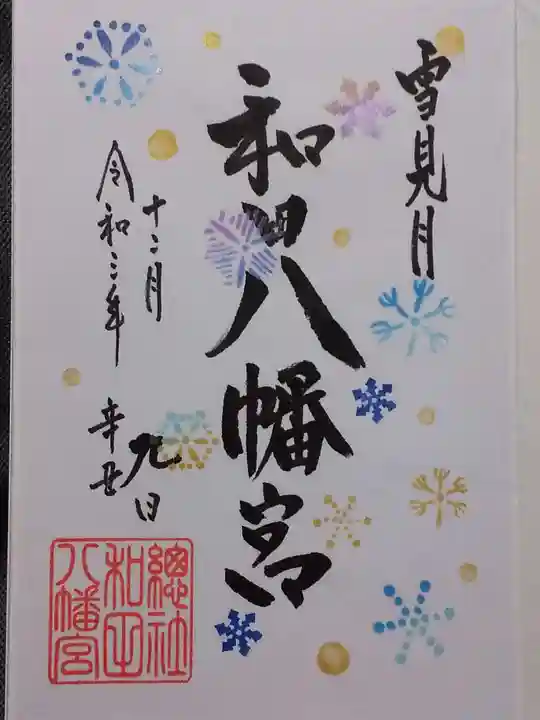 雪見月
和田八幡宮
十二月
九日
令和三年
辛丑
總社
和田
八幡宮